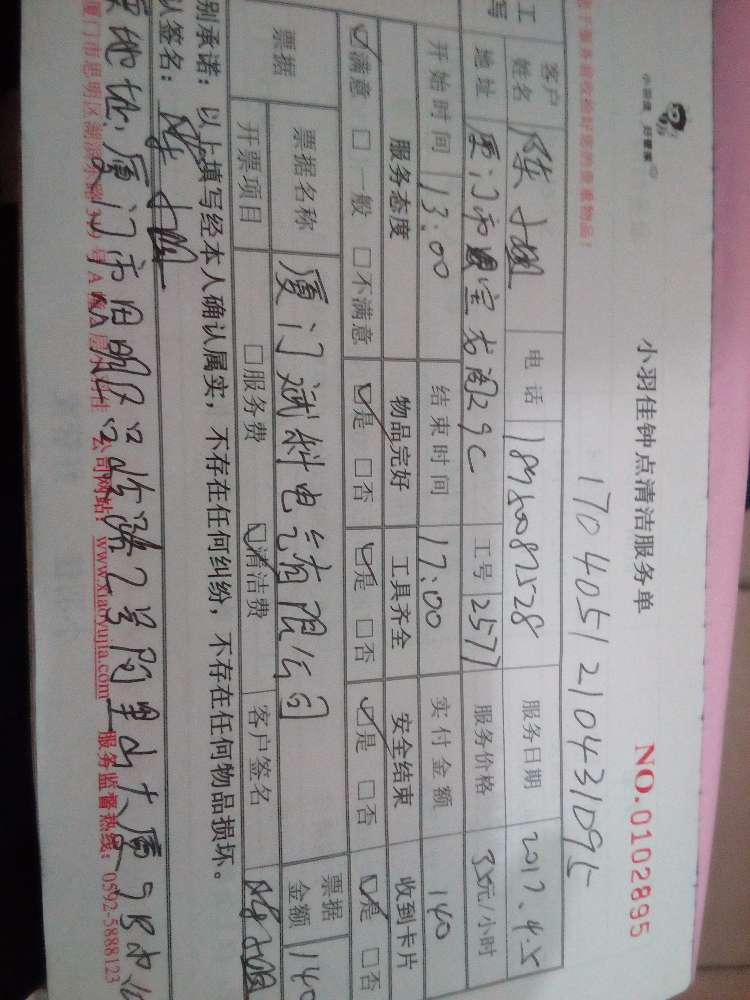 小羽佳 好管家
小羽佳钟点清洁服务单
NO.0102895
1704051210431095
客户姓名 电话 18950082528 服务日期 2017.4.5
地址 厦门市 29C 工号 2577 服务价格 35元/小时
开始时间 13.00 结束时间 17.00 实付金额 140
服务态度 物品完好 工具齐全 安全结束 收到卡片
☑满意 □一般 □不满意 ☑是 □否 ☑是 □否 ☑是 □否 ☑是 □否
票据 票据名称 厦门 料电 有限公司 票据金额 140
开票项目 □服务费 ☑清洁费 客户签名
别承诺：以上填写经本人确认属实，不存在任何纠纷，不存在任何物品损坏。
认签名：
地址：厦门市思明区 路2号阿里山大厦
厦门市思明区湖滨东路 号A 公司网站：www.xiaoyujia.com 服务监督热线：0592-5888123